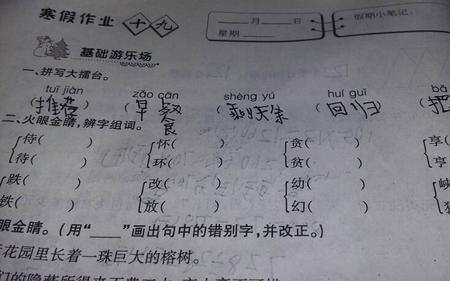 寒假作业 十九 月 日 假期小笔记:
星期
基础游乐场
一、拼写大擂台。
tuī jiàn zǎo cān shèng yú huí guī bǎ
(推荐) (早餐) ( (回归) (把
二、火眼金睛,辨字组词。
侍( ) 怀( ) 贪( ) 享(
待( ) 环( ) 贫( ) 亨
跌( ) 改( ) 幼( ) 峡
铁( ) 放( ) 幻( )
眼金睛。(用“____”画出句中的错别字,并改正。)
花园里长着一珠巨大的榕树。